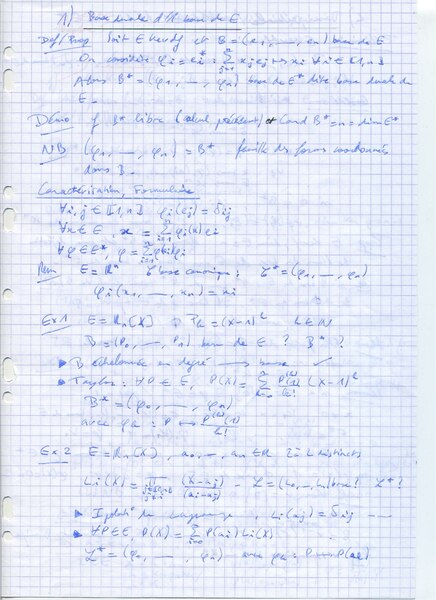 1) Base duale d'1 base de E
Def/Prop Soit E kevdf et B = (e1, —, en) base de E
On considère φi = ei* : Σ xjej ↦ xi ∀i ∈ [1,n]
Alors B* = (φ1, —, φn) base de E* dite base duale de
E.
Démo B* libre (calcul précédent) et Card B* = n = dim E*
NB (φ1, —, φn) = B* famille des formes coordonnées
dans B.
Caractérisation, Formulaire
∀i,j ∈ [1,n] φi(ej) = δij
∀x ∈ E, x = Σ φi(x)ei
∀φ ∈ E*, φ = Σ φ(ei)φi
Rem E = Rⁿ base canonique : C* = (φ1, —, φn)
φi(x1, —, xn) = xi
Ex 1 E = Rn[X] Pk = (X-1)^k k ∈ N
B = (P0, —, Pn) base de E ? B* ?
▸ B échelonnée en degré → base ✓
▸ Taylor : ∀P ∈ E, P(X) = Σ P^(k)(1)/k! (X-1)^k
B* = (φ0, —, φn)
avec φk : P ↦ P^(k)(1)/k!
Ex 2 E = Rn[X], a0, —, an ∈ R 2 à 2 distincts
Li(X) = Π (X-aj)/(ai-aj) - L = (L0, —, Ln) base ? L* ?
▸ Lagrange, Li(aj) = δij
▸ ∀P ∈ E, P(X) = Σ P(ai)Li(X)
L* = (φ0, —, φn) avec φk : P ↦ P(ak)